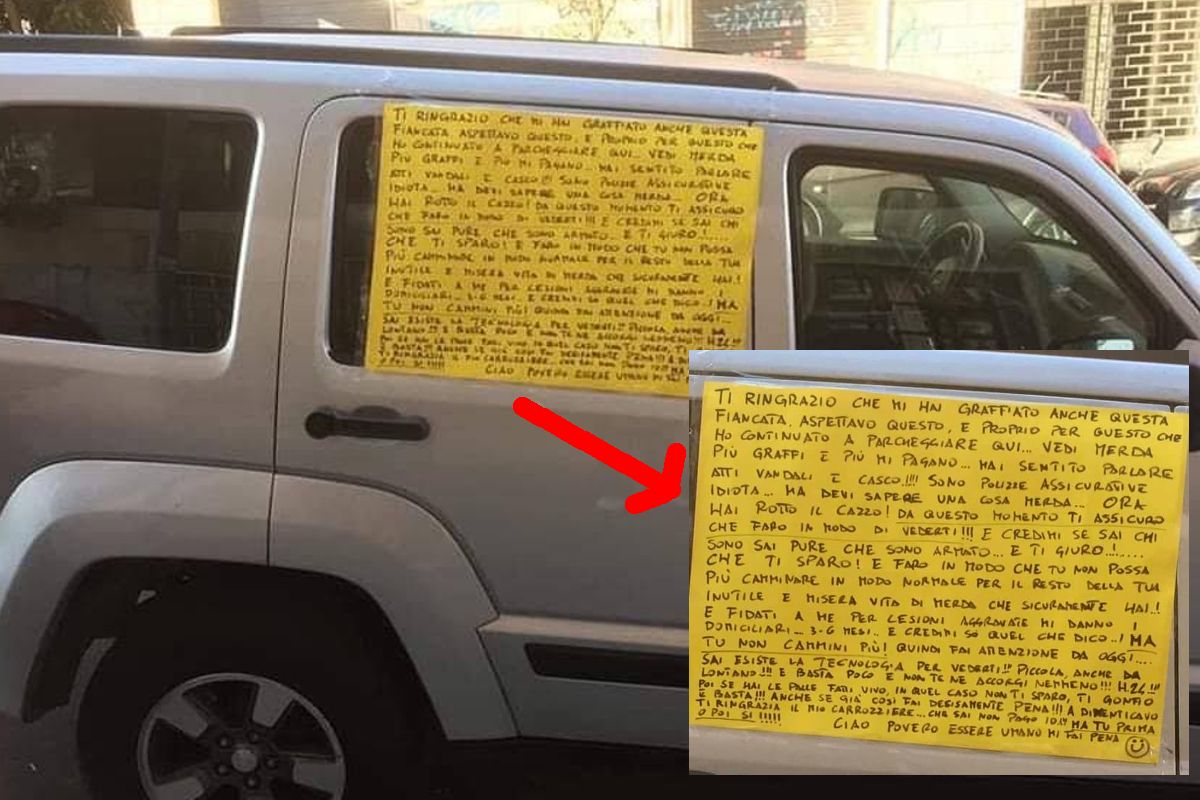 TI RINGRAZIO CHE MI HAI GRAFFIATO ANCHE QUESTA
FIANCATA. ASPETTAVO QUESTO, E PROPRIO PER QUESTO CHE
HO CONTINUATO A PARCHEGGIARE QUI... VEDI MERDA
PIÙ GRAFFI E PIÙ MI PAGANO... HAI SENTITO PARLARE
ATTI VANDALI E CASCO!!! SONO POLIZIE ASSICURATIVE
IDIOTA... MA DEVI SAPERE UNA COSA MERDA... ORA
HAI ROTTO IL CAZZO! DA QUESTO MOMENTO TI ASSICURO
CHE FARO IN MODO DI VEDERTI!!! E CREDIMI SE SAI CHI
SONO SAI PURE CHE SONO ARMATO... E TI GIURO..!.....
CHE TI SPARO! E FARO IN MODO CHE TU NON POSSA
PIÙ CAMMINARE IN MODO NORMALE PER IL RESTO DELLA TUA
INUTILE E MISERA VITA DI MERDA CHE SICURAMENTE HAI..!
E FIDATI A ME PER LESIONI AGGRAVATE MI DANNO I
DOMICILIARI... 3-6 MESI.. E CREDIMI SÒ QUEL CHE DICO..! MA
TU NON CAMMINI PIÙ! QUINDI FAI ATTENZIONE DA OGGI....
SAI ESISTE LA TECNOLOGIA PER VEDERTI!! PICCOLA, ANCHE DA
LONTANO!!! E BASTA POCO E NON TE NE ACCORGI NEMMENO!!! H24!!!
POI SE HAI LE PALLE FATTI VIVO, IN QUEL CASO NON TI SPARO, TI GONFIO
E BASTA!!! ANCHE SE GIÀ COSI FAI DECISAMENTE PENA!!! A DIMENTICAVO
TI RINGRAZIA IL MIO CARROZZIERE... CHE SAI NON PAGO IO!!! MA TU PRIMA
O POI SI !!!!!
CIAO POVERO ESSERE UMANO MI FAI PENA